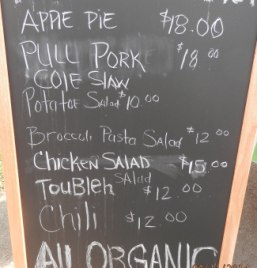 APPLE PIE $18.00
PULL PORK $18.00
COLE SLAW
Potatoe Salad $10.00
Broccoli Pasta Salad $12.00
CHICKEN SALAD $15.00
TOUBLEH SALAD $12.00
Chili $12.00
All ORGANIC